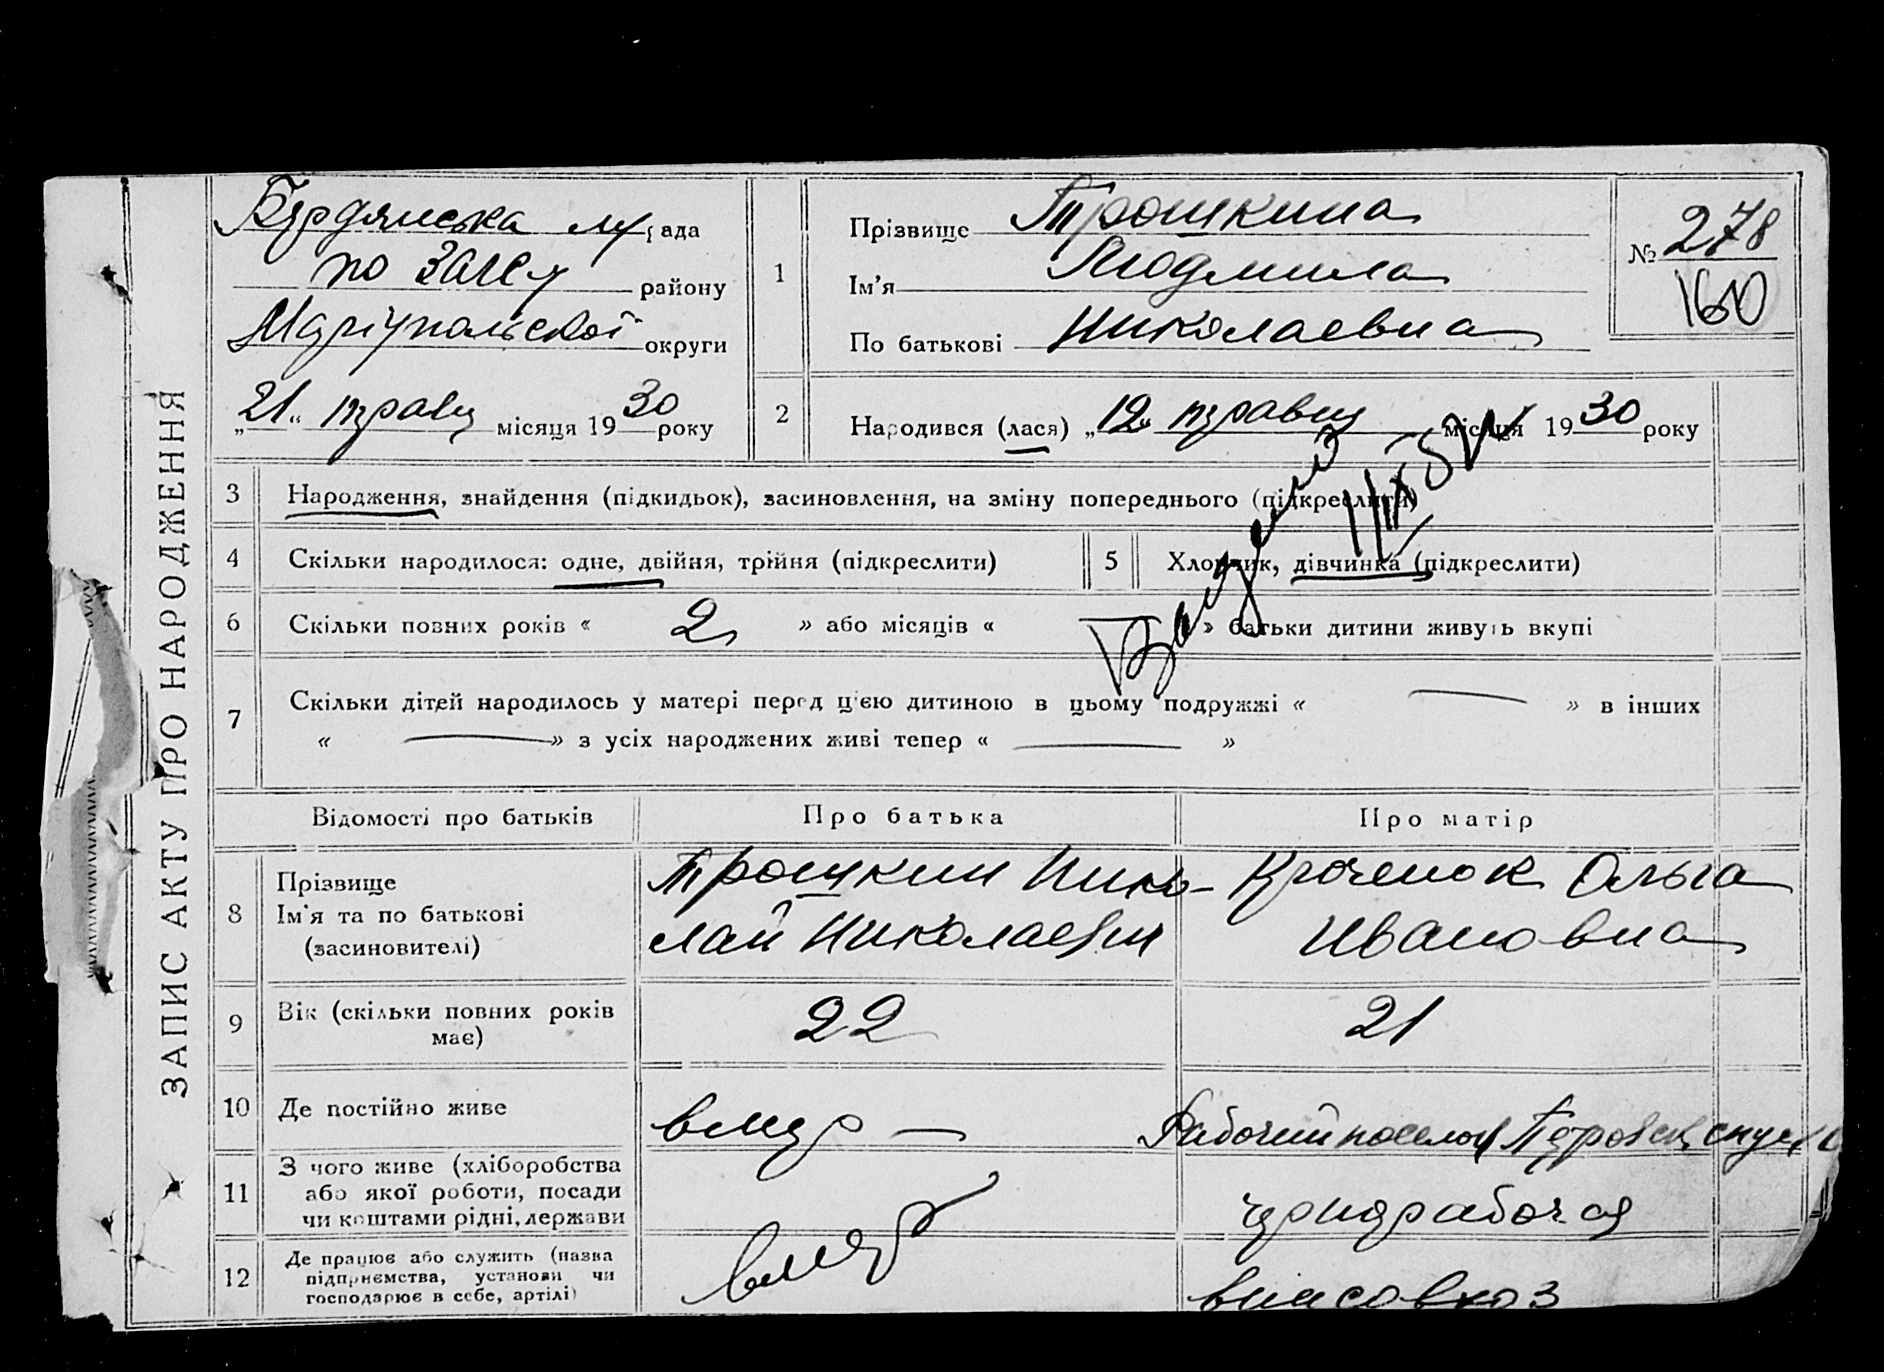 ЗАПИС АКТУ ПРО НАРОДЖЕННЯ
Бердянська м/рада
по Загсу району
Маріупольської округи
„21“ травц місяця 1930 року
1
Прізвище Трошкина
Ім'я Людмила
По батькові Николаевна
№ 278
160
2
Народився (лася) „12“ травц місяця 1930 року
3 Народження, знайдення (підкидьок), засиновлення, на зміну попереднього (підкреслити)
4 Скільки народилося: одне, двійня, трійня (підкреслити)
5 Хлопчик, дівчинка (підкреслити)
6 Скільки повних років « 2 » або місяців « » батьки дитини живуть вкупі
7 Скільки дітей народилось у матері перед цією дитиною в цьому подружжі « — » в інших
« — » з усіх народжених живі тепер « — »
Відомості про батьків
Про батька
Про матір
8 Прізвище
Ім'я та по батькові
(засиновителі)
Трошкин Нико-
лай Николаевич
Ольга
Ивановна
9 Вік (скільки повних років
має)
22
21
10 Де постійно живе
вмер —
Рабочий поселок
11 З чого живе (хліборобства
або якої роботи, посади
чи коштами рідні, держави
чернорабочая
12 Де працює або служить (назва
підприємства, установи чи
господарює в себе, артілі)
вмер